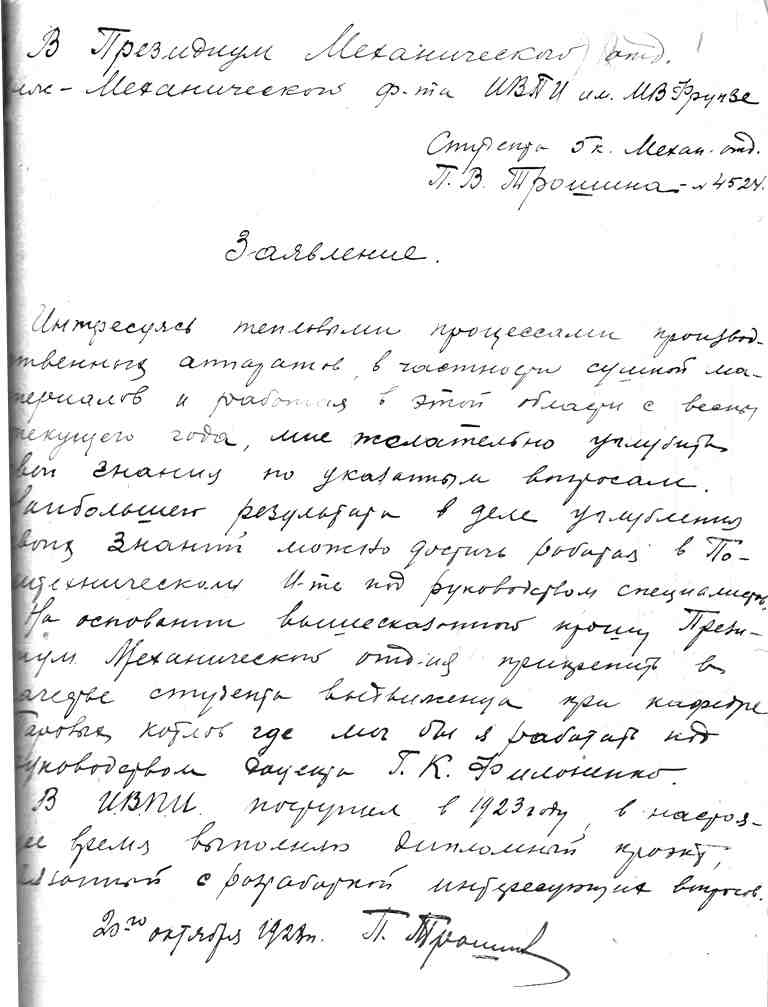 В Президиум Механического отд.
Механического ф-та ИВПИ им. МВ Фрунзе
Студента 5 к. Механ. отд.
П. В. Трошина - № 4524.
Заявление.
Интересуясь тепловыми процессами производ-
ственных аппаратов, в частности сушкой ма-
териалов и работая в этой области с весны
текущего года, мне желательно углубить
свои знания по указанным вопросам.
Наибольшего результата в деле углубления
своих знаний можно достичь работая в По-
литехническом И-те под руководством специалистов.
На основании вышесказанного прошу Прези-
диум Механического отд-ия прикрепить в
качестве студента выдвиженца при кафедре
Паровых котлов где мог бы я работать под
руководством доцента Г. К. Филоненко.
В ИВПИ поступил в 1923 году, в настоя-
щее время выполняю дипломный проэкт,
связанный с разработкой интересующих вопросов.
октября П. Трошин